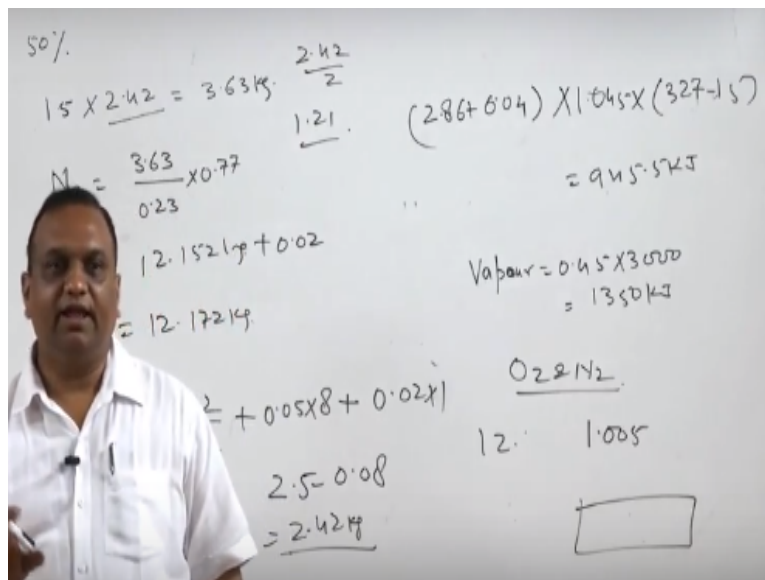 50%.
15 × 2.42 = 3.63 kg.
2.42
2
1.21.
N =
3.63
0.23
×0.77
12.152 kg + 0.02
= 12.172 kg.
+ 0.05×8 + 0.02×1
2.5 - 0.08
= 2.42 kg
(2.86+0.04) × 1.045 × (327-15)
= 945.5 KJ
Vapour = 0.45×3000
= 1350 KJ
O2 & N2.
12. 1.005